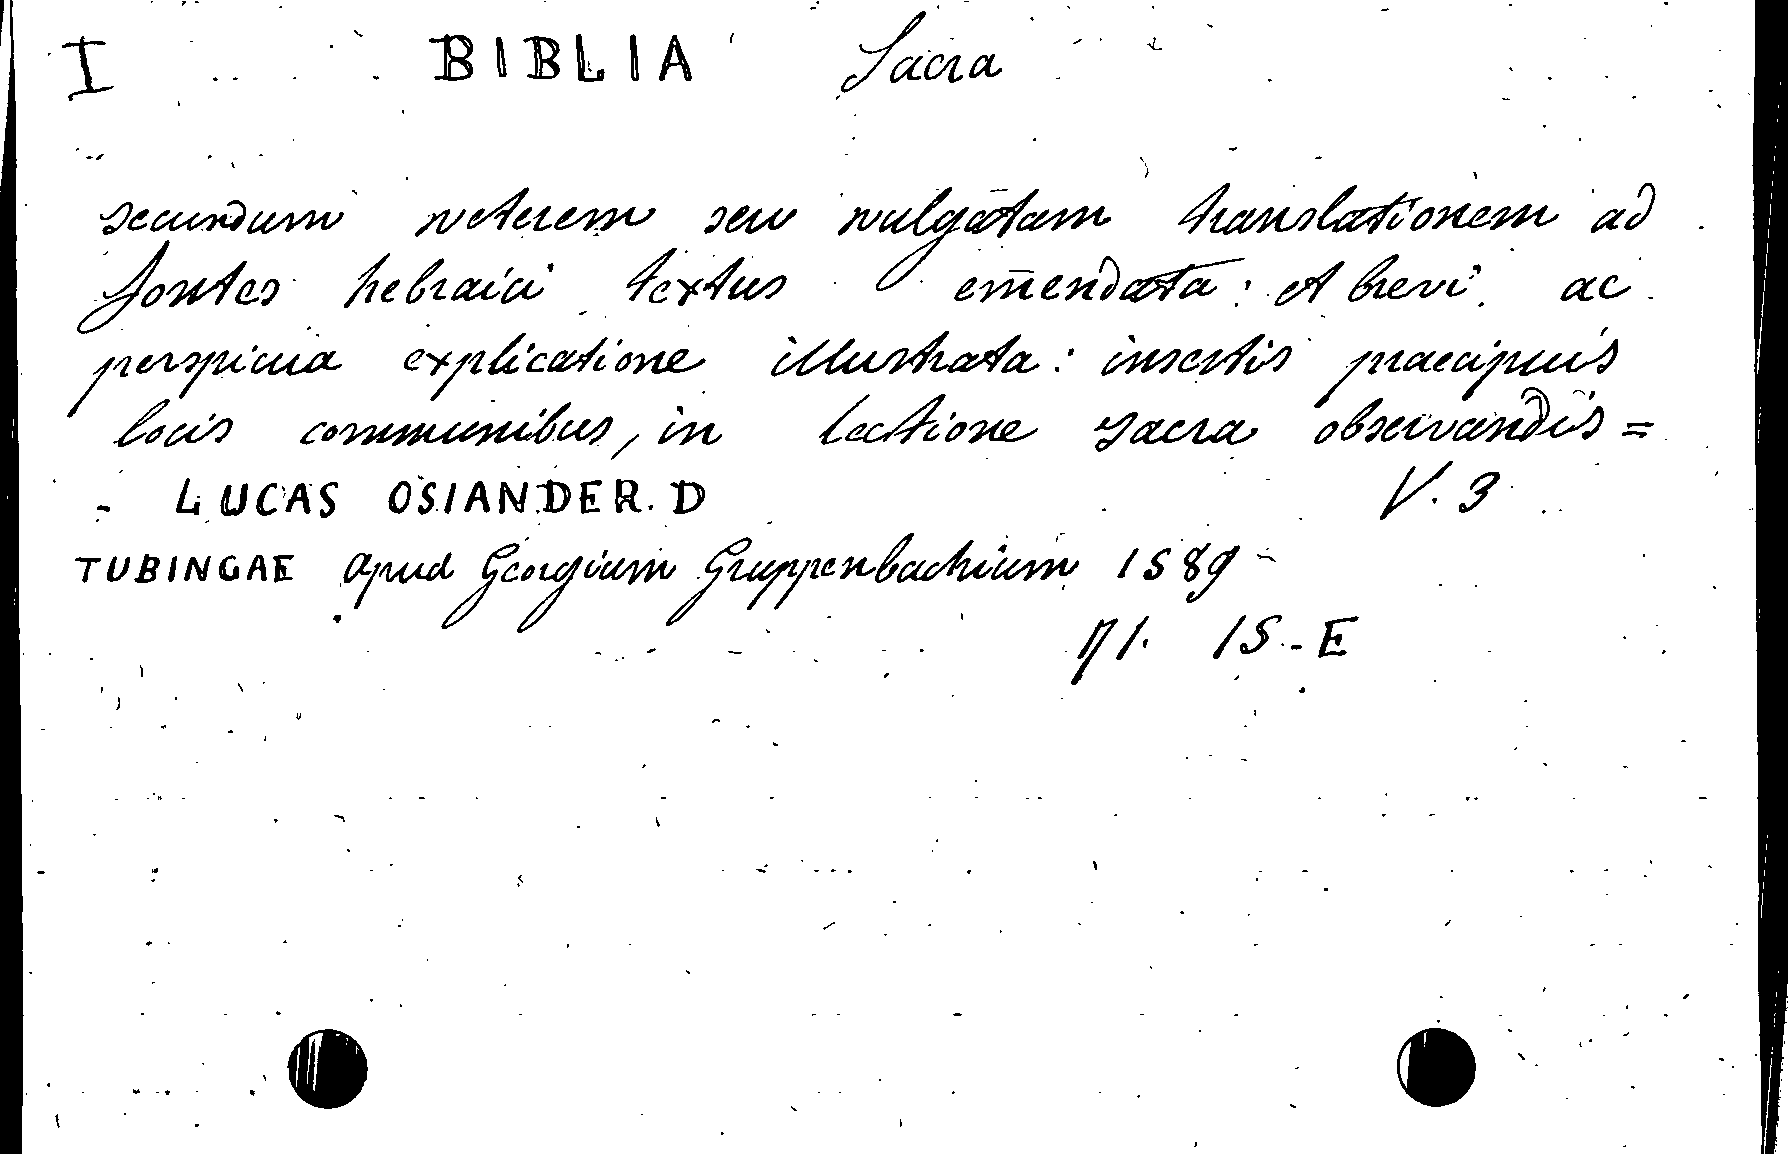 I BIBLIA Sacra
secundum veterem seu vulgatam translationem ad
fontes hebraici textus emendata: et brevi ac
perspicua explicatione illustrata: insertis praecipuis
locis communibus, in lectione sacra observandis =
- LUCAS OSIANDER. D V. 3
TUBINGAE apud Georgium Gruppenbachium 1589 -
15 - E